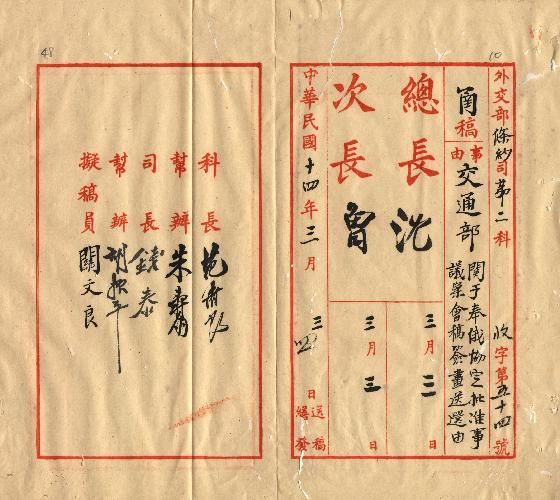 10
外交部條約司第二科 收字第五十四號
甬稿
事由 交通部 関于奉俄協定批准事
議案會稿簽畫送還由
總長 沈 三月三日
次長 三月三日
中華民國十四年三月三 日送稿
繕發
48
科長 范
幫辦 朱
司長 錢泰
幫辦 胡
擬稿員 關文良